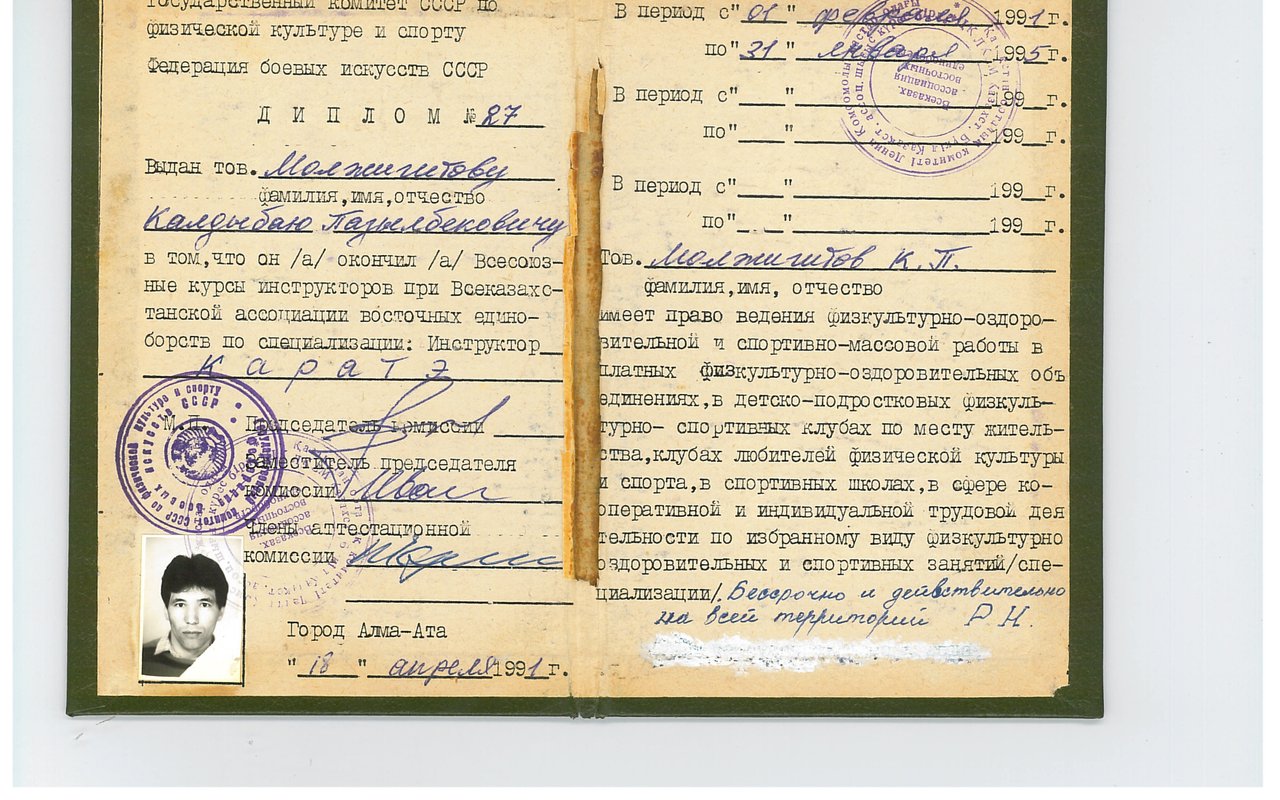 Государственный комитет СССР по
физической культуре и спорту
Федерация боевых искусств СССР
ДИПЛОМ № 27
Выдан тов. Молжигитову
фамилия,имя,отчество
Калдыбаю Пазылбековичу
в том,что он /а/ окончил /а/ Всесоюз-
ные курсы инструкторов при Всеказахс-
танской ассоциации восточных едино-
борств по специализации: Инструктор
каратэ
М.П. Председатель комиссии
Заместитель председателя
комиссии
Члены аттестационной
комиссии
Город Алма-Ата
"18" апреля 1991 г.
В период с"01" февраля 1991г.
по"31" января 1995г.
В период с"__"____199_г.
по"__"____199_г.
В период с"__"____199_г.
по"__"____199_г.
Тов. Молжигитов К.П.
фамилия,имя, отчество
имеет право ведения физкультурно-оздоро-
вительной и спортивно-массовой работы в
платных физкультурно-оздоровительных объ
единениях,в детско-подростковых физкуль-
турно- спортивных клубах по месту житель-
ства,клубах любителей физической культуры
и спорта,в спортивных школах,в сфере ко-
оперативной и индивидуальной трудовой дея
тельности по избранному виду физкультурно
оздоровительных и спортивных занятий/спе-
циализации/. Бессрочно и действительно
на всей территорий Р.Н.